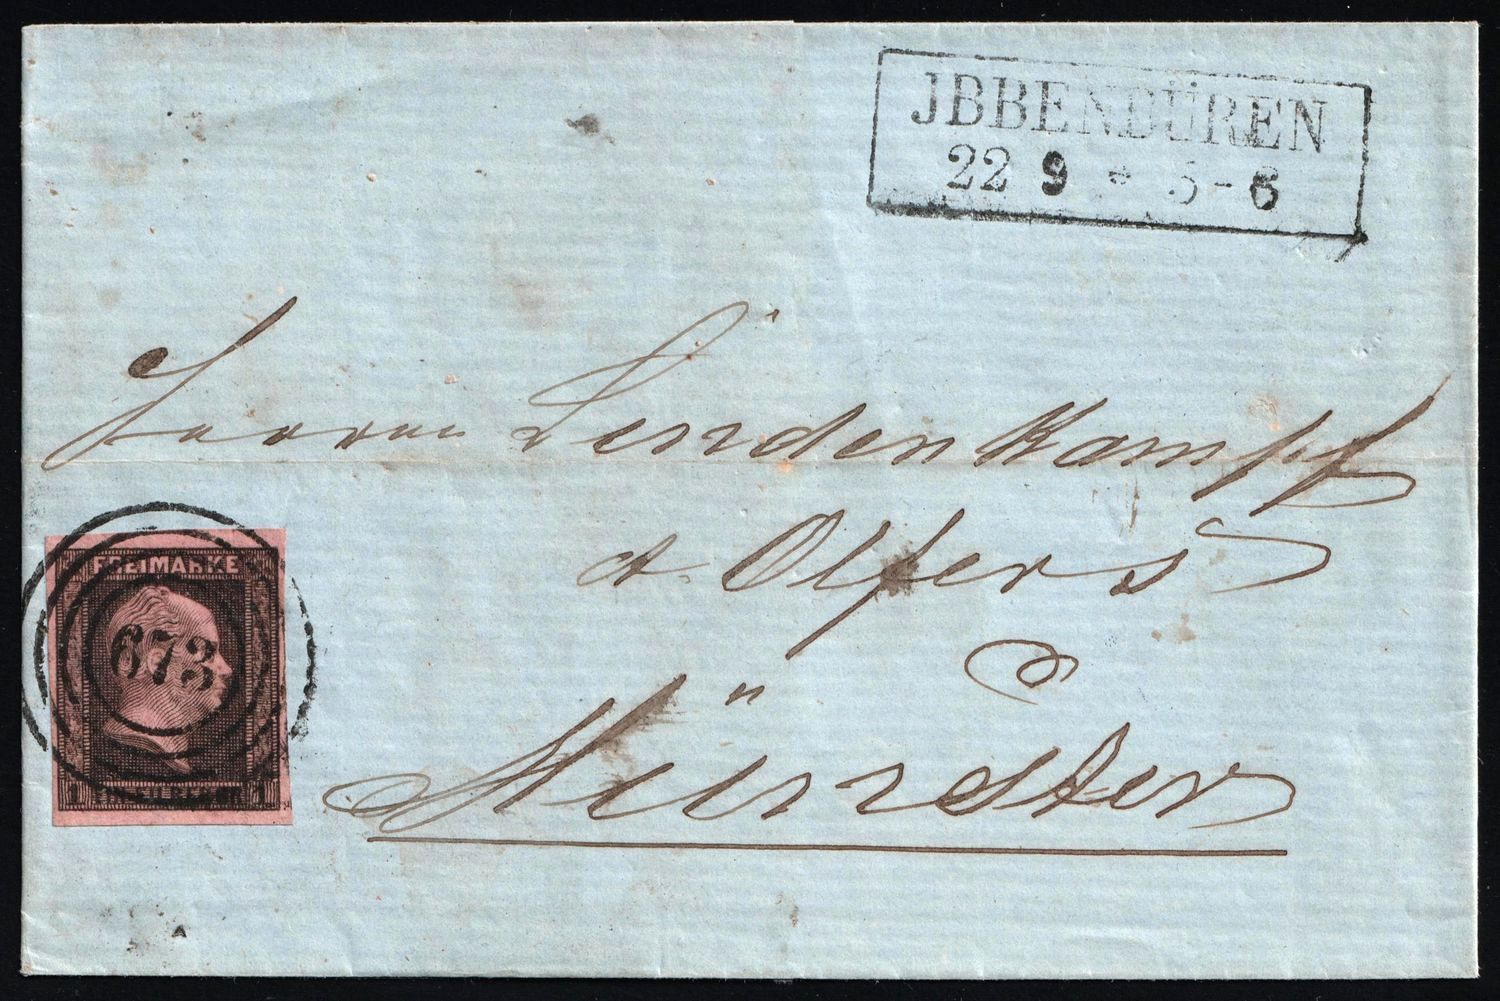 JBBENBÜREN
22 9 * 5-6
Herren Lindenkampf
& Olfers
Münster
FREIMARKE
673
1 SILBERGR. 1